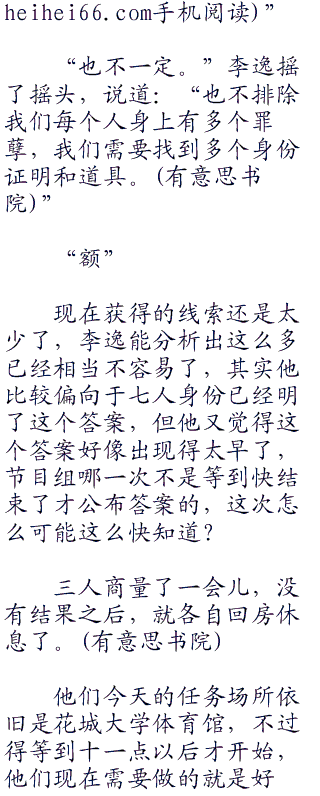 heihei66.com手机阅读)”
“也不一定。”李逸摇
了摇头，说道：“也不排除
我们每个人身上有多个罪
孽，我们需要找到多个身份
证明和道具。(有意思书
院)”
“额”
现在获得的线索还是太
少了，李逸能分析出这么多
已经相当不容易了，其实他
比较偏向于七人身份已经明
了这个答案，但他又觉得这
个答案好像出现得太早了，
节目组哪一次不是等到快结
束了才公布答案的，这次怎
么可能这么快知道？
三人商量了一会儿，没
有结果之后，就各自回房休
息了。(有意思书院)
他们今天的任务场所依
旧是花城大学体育馆，不过
得等到十一点以后才开始，
他们现在需要做的就是好